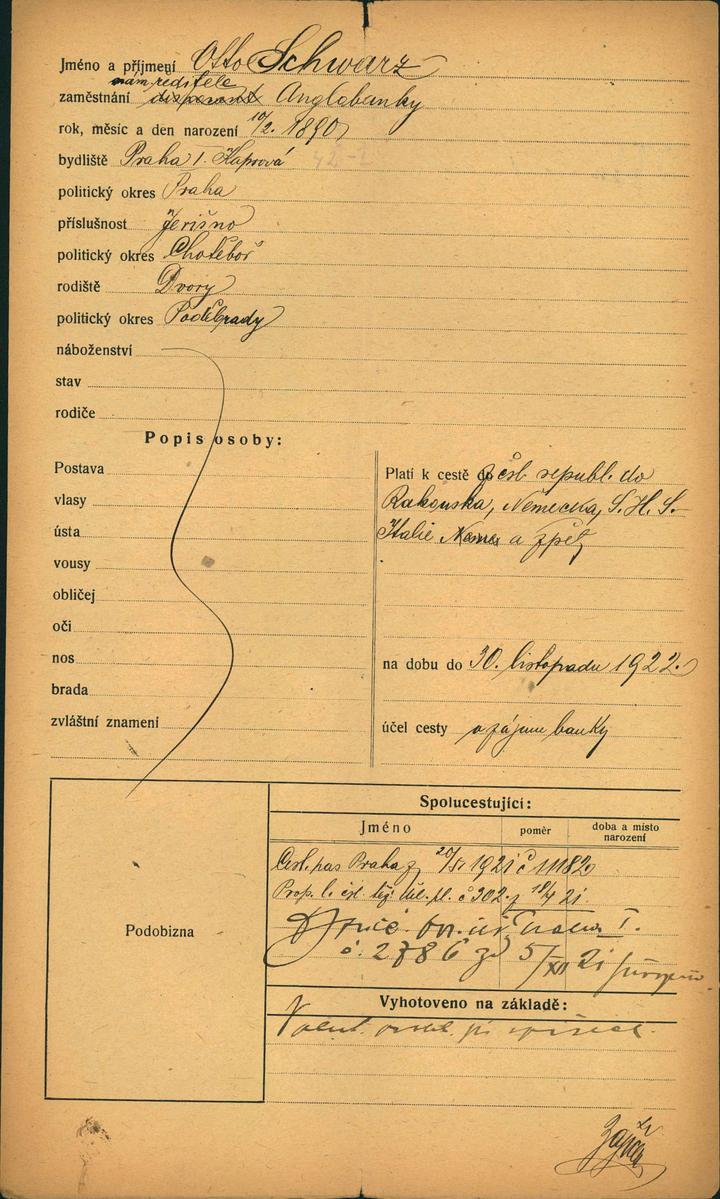 Jméno a příjmení Otto Schwarz
nám. ředitele
zaměstnání disponent Anglobanky
rok, měsíc a den narození 10/2. 1890
bydliště Praha I. Kaprová 42-2
politický okres Praha
příslušnost Jeřišno
politický okres Chotěboř
rodiště Dvory
politický okres Poděbrady
náboženství
stav
rodiče
Popis osoby:
Postava
vlasy
ústa
vousy
obličej
oči
nos
brada
zvláštní znamení
Platí k cestě do z čsl. republ. do
Rakouska, Německa, S. H. S.
Italie a zpět
na dobu do 30. listopadu 1922.
účel cesty v zájmu banky
Podobizna
Spolucestující:
Jméno poměr doba a místo narození
Cest. pas Praha z 1921 č 11182
Prop. l. čsl. č 302 z 18/4 21
Praha I.
č. 2786 z 5/XII 21
Vyhotoveno na základě: